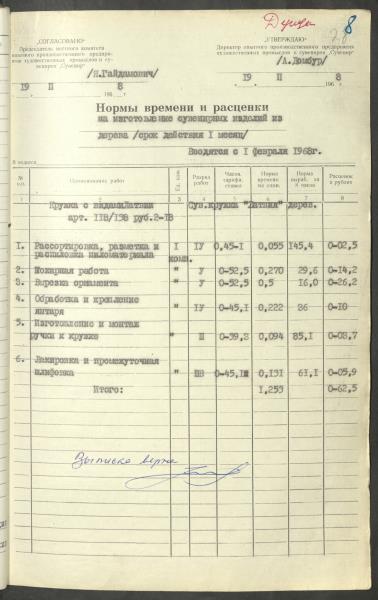 Дзидра 8
28
„СОГЛАСОВАНО“ „УТВЕРЖДАЮ“
Председатель местного комитета Директор опытного производственного предприятия
опытного производственного предприя- художественных промыслов и сувениров „Сувенир“
тия художественных промыслов и су-
вениров „Сувенир“
/Я.Гайдамович/ /А.Домбур/
19 II 8 19 II 8
196 г. 196 г.
Нормы времени и расценки
на изготовление сувенирных изделий из
дерева /срок действия I месяц/
Вводятся с I февраля 1968г.
№ п.п. Наименование работ Ед. изм. Разряд работ Часов. тарифн. ставка Норма времени на един. Норма выраб. за 8 часов Расценок в рублях
1 2 3 4 5 6 7 8
Кружка с видами Латвии Сув.кружка "Латвия" дерев.
арт. IIВ/158 руб.2-18
1. Рассортировка, разметка и I IУ 0,45-I 0,055 I45,4 0-02,5
распиловка пиломатериала комп.
2. Токарная работа " У 0-52,5 0,270 29,6 0-14,2
3. Вырезка орнамента " У 0-52,5 0,5 16,0 0-26,2
4. Обработка и крепление
янтаря " IУ 0-45,I 0,222 36 0-10
5. Изготовление и монтаж
ручки к кружке " Ш 0-39,2 0,094 85,I 0-03,7
6. Лакировка и промежуточная
шлифовка " 0-45,I 0,131 61,I 0-05,9
Итого: I,255 0-62,5
Выписка верна